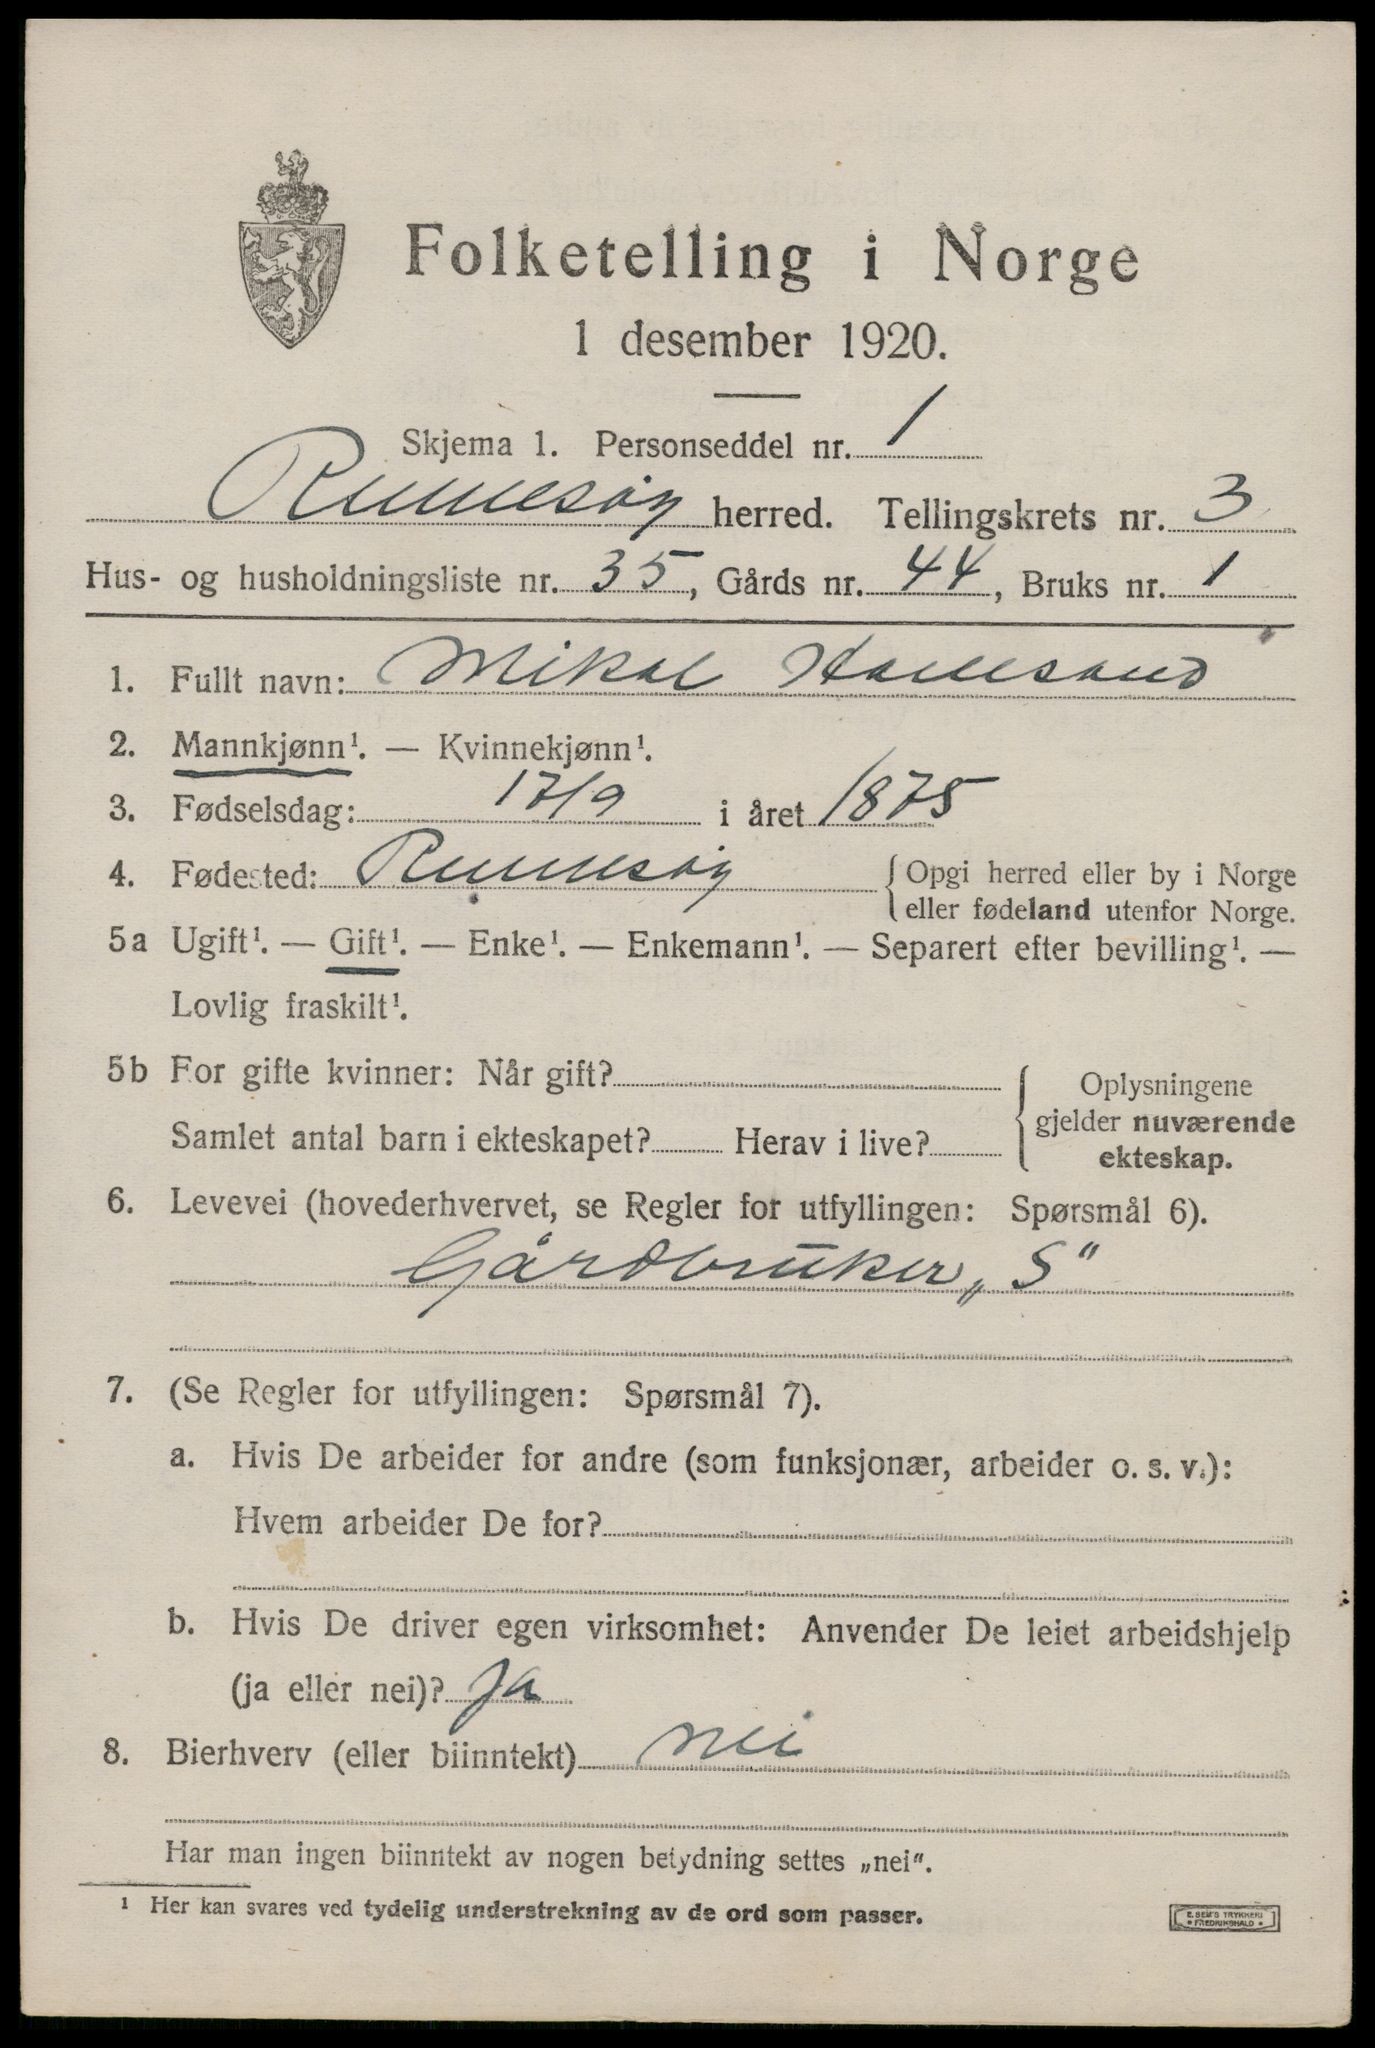 Folketelling i Norge
1 desember 1920.
Skjema 1. Personseddel nr. 1
Rennesøy herred. Tellingskrets nr. 3
Hus- og husholdningsliste nr. 35, Gårds nr. 44, Bruks nr. 1
1. Fullt navn: Mikal Hanesand
2. Mannkjønn¹. — Kvinnekjønn¹.
3. Fødselsdag: 17/9 i året 1875
4. Fødested: Rennesøy {Opgi herred eller by i Norge
eller fødeland utenfor Norge.
5a Ugift¹. — Gift¹. — Enke¹. — Enkemann¹. — Separert efter bevilling¹. —
Lovlig fraskilt¹.
5b For gifte kvinner: Når gift?
Samlet antal barn i ekteskapet? Herav i live?
Oplysningene
gjelder nuværende
ekteskap.
6. Levevei (hovederhvervet, se Regler for utfyllingen: Spørsmål 6).
Gårdbruker „S"
7. (Se Regler for utfyllingen: Spørsmål 7).
a. Hvis De arbeider for andre (som funksjonær, arbeider o. s. v.):
Hvem arbeider De for?
b. Hvis De driver egen virksomhet: Anvender De leiet arbeidshjelp
(ja eller nei)? ja
8. Bierhverv (eller biinntekt) nei
Har man ingen biinntekt av nogen betydning settes „nei".
¹ Her kan svares ved tydelig understrekning av de ord som passer.
E. SEM'S TRYKKERI
• FREDRIKSHALD •